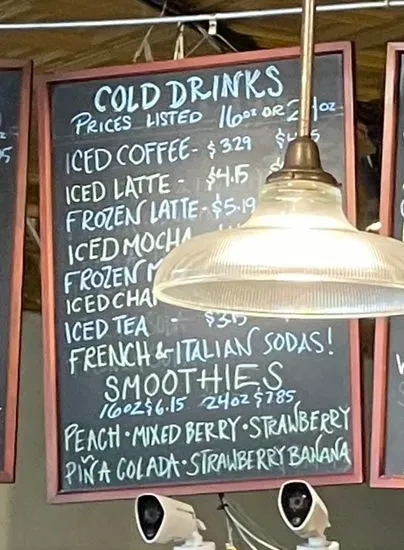 COLD DRINKS
PRICES LISTED 16oz OR 24oz
ICED COFFEE - $3.29
ICED LATTE - $4.15
FROZEN LATTE - $5.19
ICED MOCHA
FROZEN
ICED CHAI
ICED TEA $3.15
FRENCH & ITALIAN SODAS!
SMOOTHIES
16oz $6.15 24oz $7.85
PEACH • MIXED BERRY • STRAWBERRY
PIÑA COLADA • STRAWBERRY BANANA